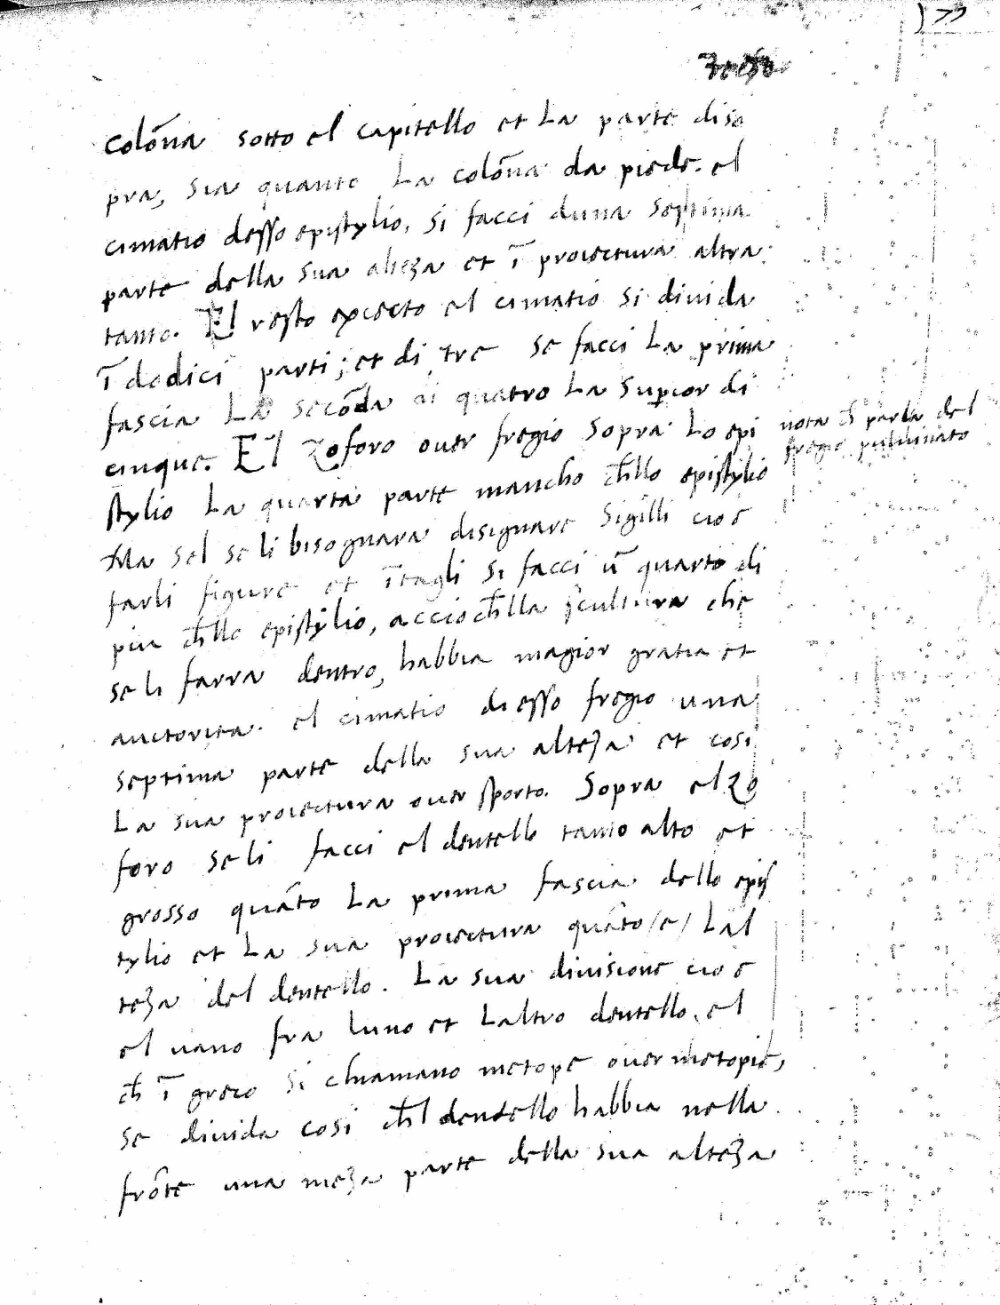 177
Terzo
colōna sotto el capitello et La parte diso
pra, sia quanto La colōna da piede. el
cimatio desso epistylio, si facci duna septima
parte della sua alteza et ī proiectura altra
tanto. El resto excecto el cimatio si divida
ī dodici parti; et di tre se facci La prima
fascia La secōda di quatro La superior di
cinque. El zoforo over fregio sopra Lo epi
stylio La quarta parte mancho ch̄llo epistylio
Ma sel se li bisognara disignare sigilli cioe
farli figure et ītagli si facci ū quarto di
piu ch̄llo epistylio, accioch̄lla scultura che
se li farra dentro, habbia magior gratia et
auctorita. el cimatio di esso fregio una
septima parte della sua alteza et cosi
La sua proiectura over sporto. Sopra el zo
foro se li facci el dentello tanto alto et
grosso quāto La prima fascia dello epis
tylio et La sua proiectura quāto /e/ Lal
teza del dentello. La sua divisione cioe
el vano fra luno et Laltro dentello, el
ch̄ ī greco si chiamano metope over metopie,
se divida cosi ch̄l dentello habbia nella
frōte una meza parte della sua alteza
nota ch̄ parla del
fregio pulvinato